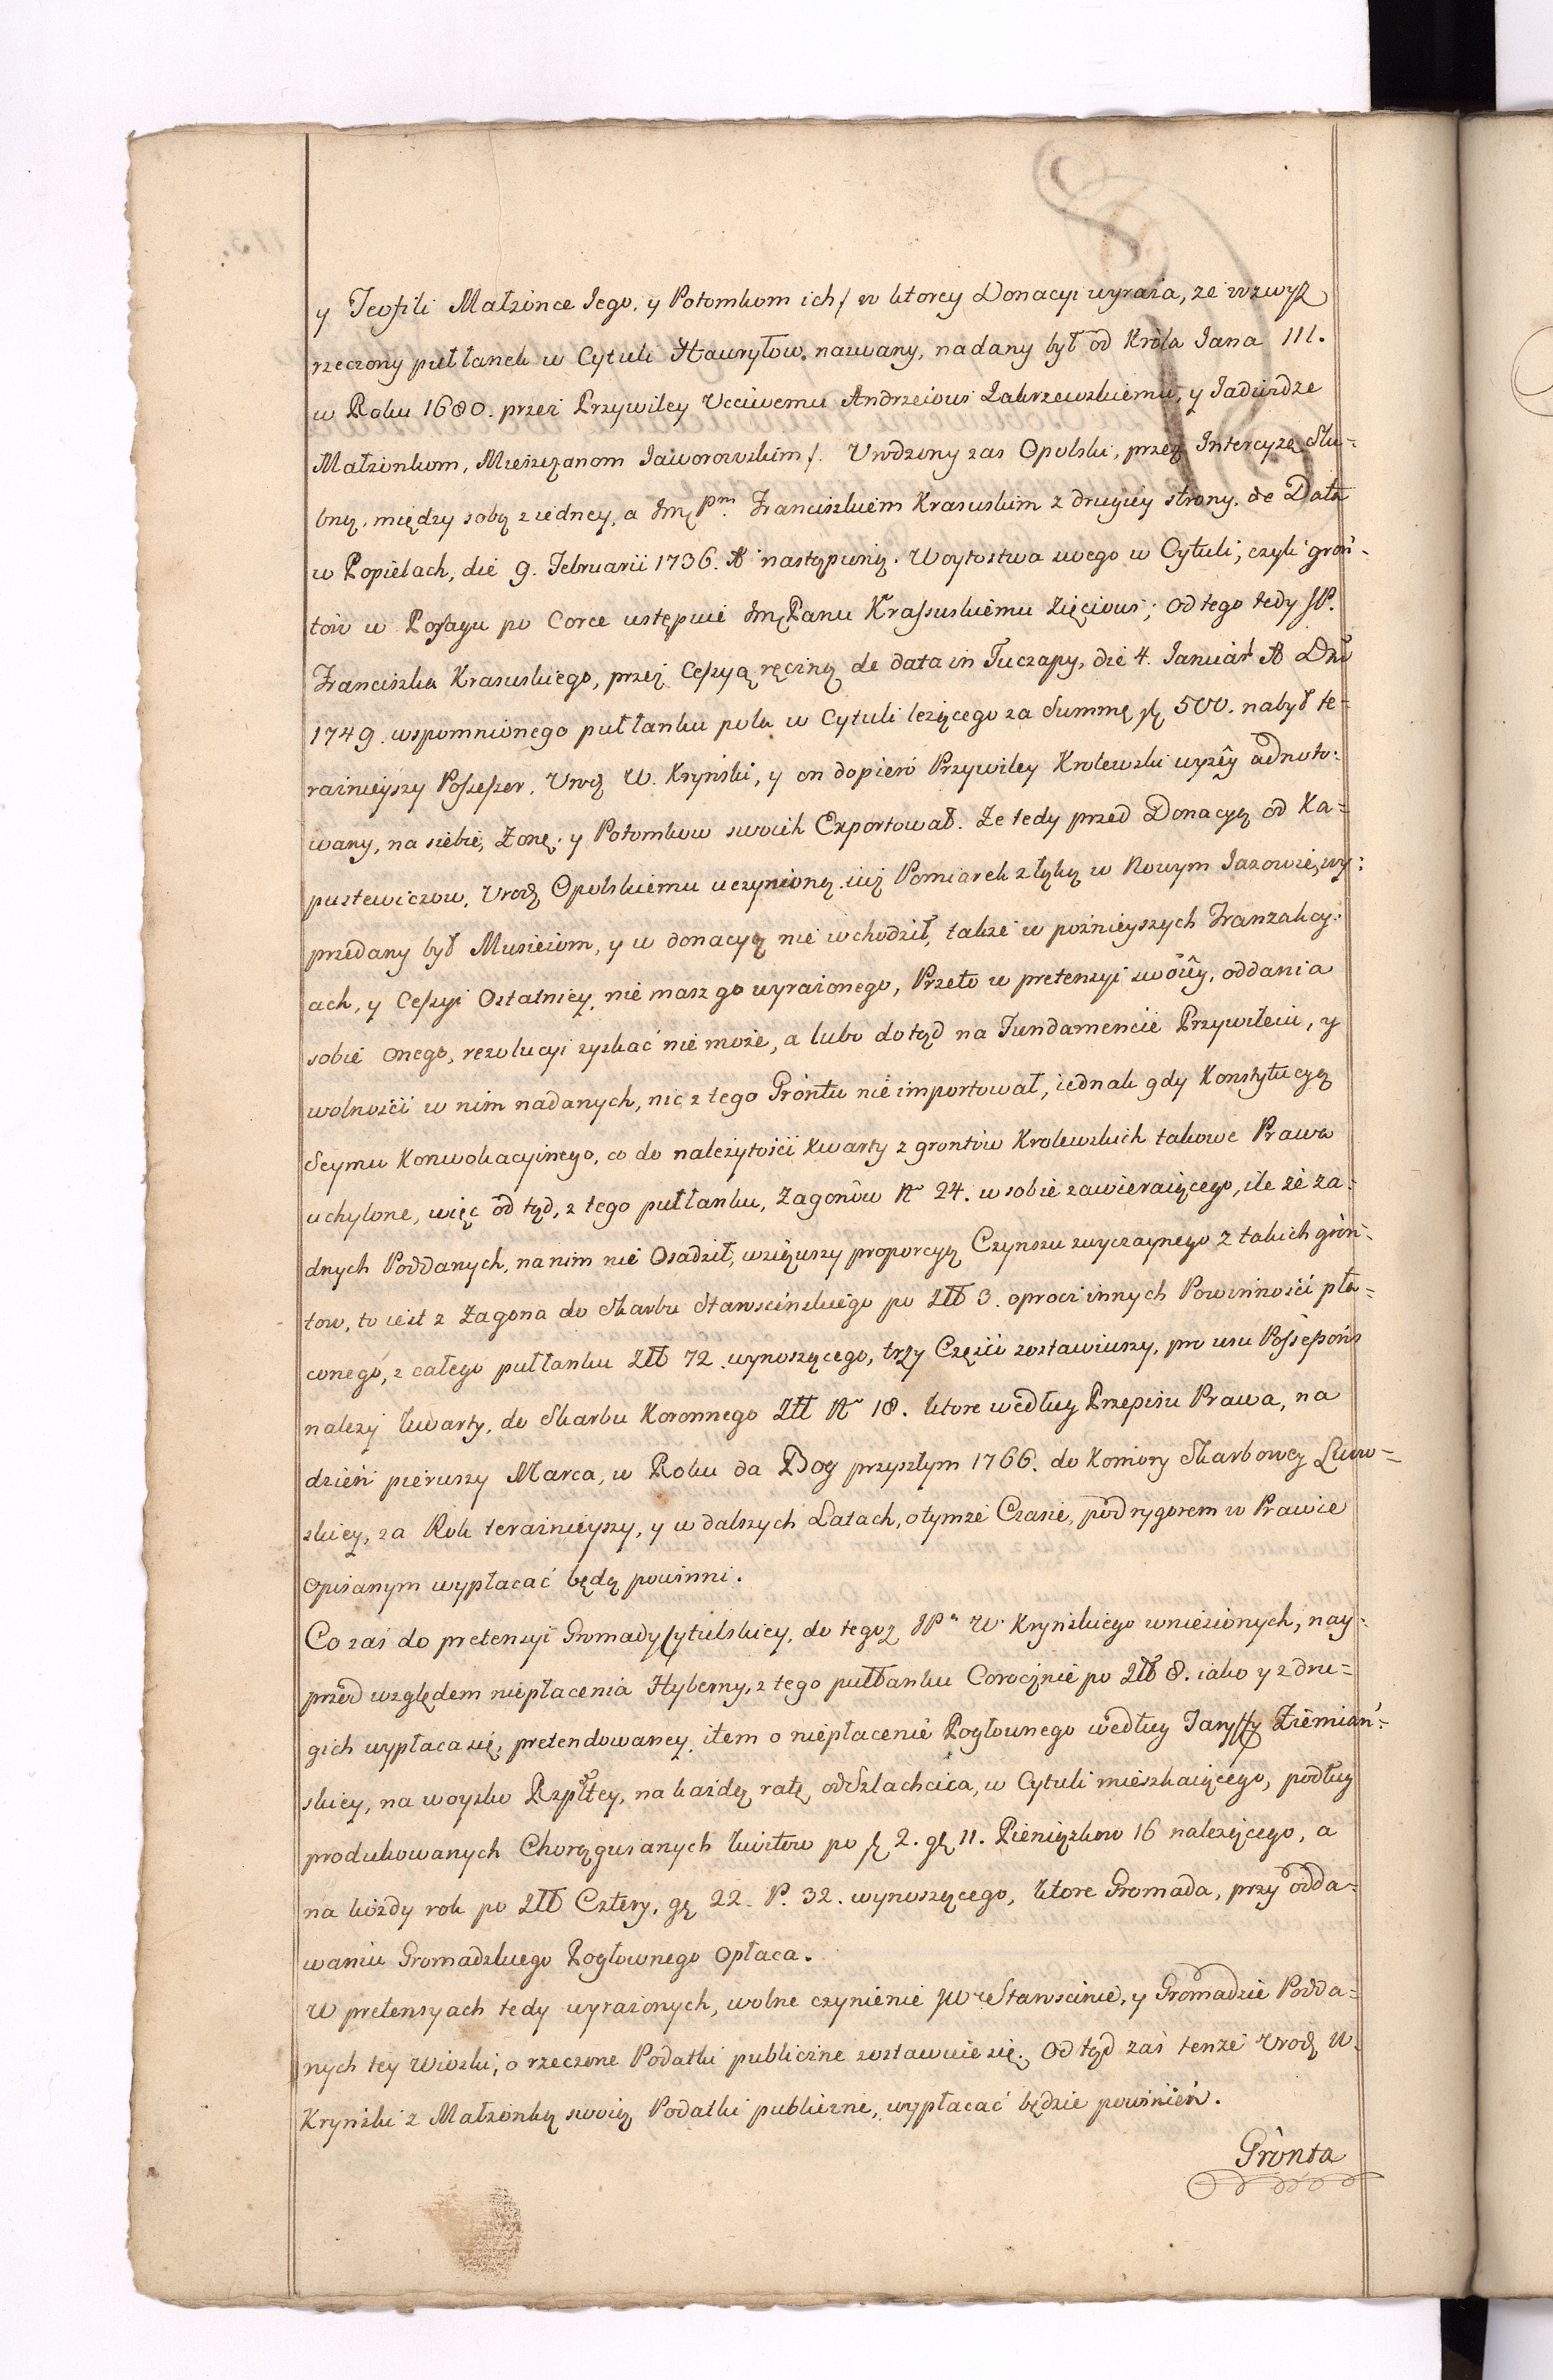 y Teofili Małżonce Jego, y Potomkom ich/ w ktorey Donacyi wyraża, że wzwyż
rzeczony pułłanek w Cytuli Hawryłow. nazwany, nadany był od Króla Jana III.
w Roku 1680. przez Przywiley Uczciwemu Andrzeiowi Zakrzewskiemu, y Jadwidze
Małżonkom, Mieszczanom Jaworowskim/. Urodzony zas Opolski, przez Intercyzę Slu-
bną, między sobą z iedney, a Jmę Pm. Franciszkiem Krasuskim z drugiey strony, de Data
w Popielach, die 9. Februarii 1736. A następuiną. Woytostwa swego w Cytuli, czyli gron-
tów w Posagu po Corce ustępuie Jmę Panu Krassuskiemu Zięciowi; od tego tedy JP.
Franciszka Krasuskiego, przez Cessyą ręczną de data in Tuczapy, die 4. Januar A Dni
1749. wspomnionego pułłanku pola w Cytuli leżącego za Summę zł 500. nabył te-
raźnieyszy Possessor, Urodz W. Kryński, y on dopiero Przywiley Krolewski wyżey adnoto-
wany, na siebie, Zonę, y Potomkow swoich Exportował. Ze tedy przed Donacyą od Ka-
pustewiczow, Urodz Opolskiemu uczynioną, iuż Pomiarek z łąką w Nowym Jazowie, wy-
przedany był Musieiom, y w donacyą nie wchodził, także w poźnieyszych Tranzakcy-
ach, y Cessyi Ostatniey, nie masz go wyrażonego, Przeto w pretensyi swoiey, oddania
sobie onego, rezolucyi zyskać nie może, a lubo dotąd na Fundamencie Przywileiu, y
wolności w nim nadanych, nic z tego Gróntu nie importował, iednak gdy Konstytucyą
Seymu Konwokacyinego, co do należytości Kwarty z grontów Krolewskich takowe Prawa
uchylone, więc od tąd, z tego pułłanku, Zagonów No 24. w sobie zawieraiącego, ile że ża-
dnych Poddanych, na nim nie Osadził, wziąwszy proporcyą Czynszu zwyczaynego z takich gron-
tow, to iest z Zagona do Skarbu Starościńskiego po Złł 3. oprocz innych Powinności pła-
conego, z całego pułłanku Złł 72 wynoszącego, trzy Części zostawiwszy, pro usu Possessoris
należy kwarty, do Skarbu Koronnego Złł No 18. ktore według Przepisu Prawa, na
dzień pierwszy Marca, w Roku da Bog przyszłym 1766. do Komory Skarbowey Lwow-
skiey, za Rok teraźnieyszy, y w dalszych Latach, o tymże Czasie, pod rygorem w Prawie
opisanym wypłacać będą powinni.
Co zaś do pretensyi Gromady Cytulskiey, do tegoż JPa W. Kryńskiego wniesionych, nay-
przód względem niepłacenia Hyberny, z tego pułłanku Corocznie po Złł 8. iako y z dru-
gich wypłaca się, pretendowaney, item o niepłacenie Pogłownego według Taryffy Ziemiań-
skiey, na woysko Rzpltey, na każdą ratę od Szlachcica, w Cytuli mieszkaiącego, podług
produkowanych Chorągwianych kwitow po zł 2. gr 11. Pieniążkow 16 należącego, a
na każdy rok po Złł Cztery, gr 22. P. 32. wynoszącego, ktore Gromada, przy odda-
waniu Gromadzkiego Pogłownego opłaca.
W pretensyach tedy wyrażonych, wolne czynienie JW Starościnie, y Gromadzie Podda-
nych tey Wioski, o rzeczone Podatki publiczne zostawuie się. Od tąd zaś tenże Urodz W.
Kryński z Małżonką swoią Podatki publiczne, wypłacać będzie powinien.
Grónta